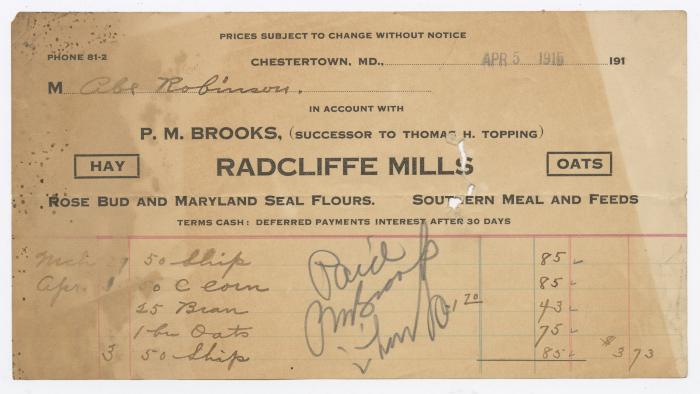 PRICES SUBJECT TO CHANGE WITHOUT NOTICE
PHONE 81-2
CHESTERTOWN, MD., APR 5 1915 191
M Abe Robinson.
IN ACCOUNT WITH
P. M. BROOKS, (SUCCESSOR TO THOMAS H. TOPPING)
HAY RADCLIFFE MILLS OATS
ROSE BUD AND MARYLAND SEAL FLOURS. SOUTHERN MEAL AND FEEDS
TERMS CASH: DEFERRED PAYMENTS INTEREST AFTER 30 DAYS
Mch 29 50 Ship 85
Apr. 1 50 C Corn 85
25 Bran 43
1 bu Oats 75
3 50 Ship 85 $3 73
Paid
PM Brooks